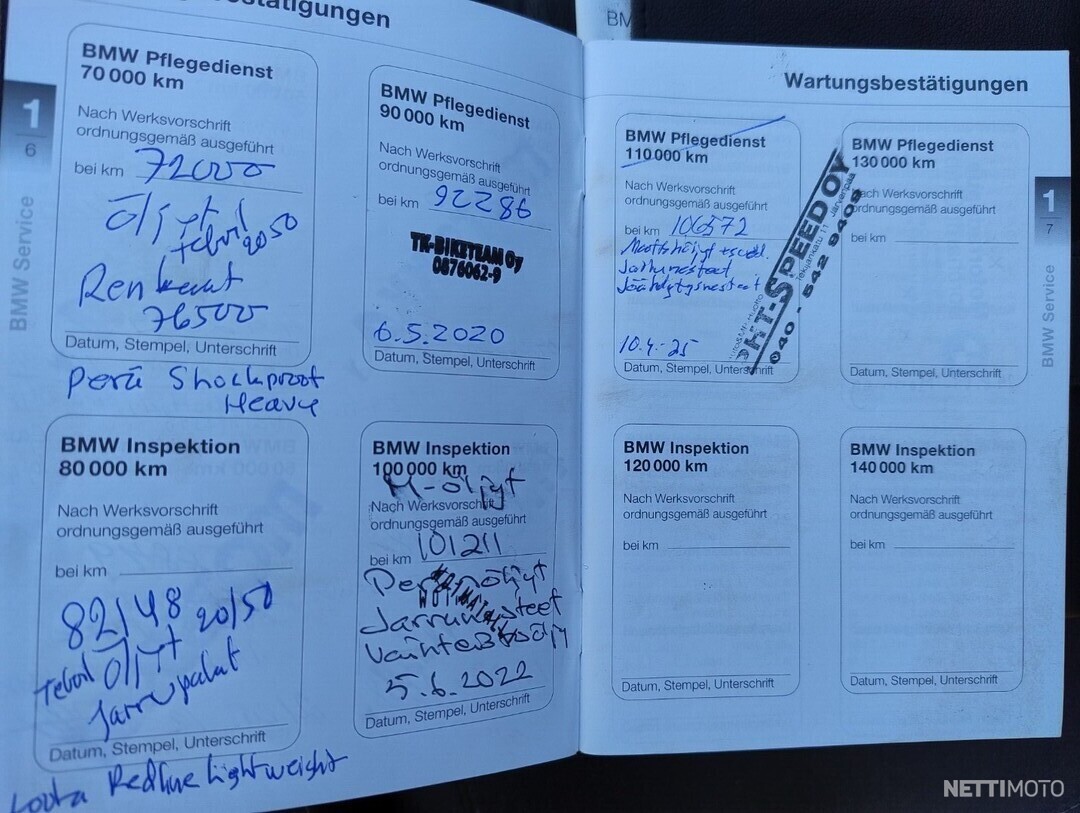 bestätigungen
BMW Pflegedienst
70 000 km
Nach Werksvorschrift
ordnungsgemäß ausgeführt
bei km 72000
Öljyt
teboil 20 50
Renkaat
76500
Datum, Stempel, Unterschrift
Perä Shockproof
Heavy
BMW Pflegedienst
90 000 km
Nach Werksvorschrift
ordnungsgemäß ausgeführt
bei km 92286
TK-BIKETEAM Oy
0876062-9
6.5.2020
Datum, Stempel, Unterschrift
BMW Inspektion
80 000 km
Nach Werksvorschrift
ordnungsgemäß ausgeführt
bei km
82148 20/50
Teboil Öljyt
Jarrupalat
Datum, Stempel, Unterschrift
Loota Redline Lightweight
BMW Inspektion
100 000 km
M-öljyt
Nach Werksvorschrift
ordnungsgemäß ausgeführt
bei km 101211
Jarrunesteet
5.6.2022
Datum, Stempel, Unterschrift
1
6
BMW Service
BM
Wartungsbestätigungen
BMW Pflegedienst
110 000 km
Nach Werksvorschrift
ordnungsgemäß ausgeführt
bei km 106572
Jarrunesteet
Jäähdytysnesteet
10.4.-25
Datum, Stempel, Unterschrift
HT-SPEED OY
Järvenpää
040 - 542 9409
BMW Pflegedienst
130 000 km
Nach Werksvorschrift
ordnungsgemäß ausgeführt
bei km
Datum, Stempel, Unterschrift
BMW Inspektion
120 000 km
Nach Werksvorschrift
ordnungsgemäß ausgeführt
bei km
Datum, Stempel, Unterschrift
BMW Inspektion
140 000 km
Nach Werksvorschrift
ordnungsgemäß ausgeführt
bei km
Datum, Stempel, Unterschrift
1
7
BMW Service
NETTIMOTO